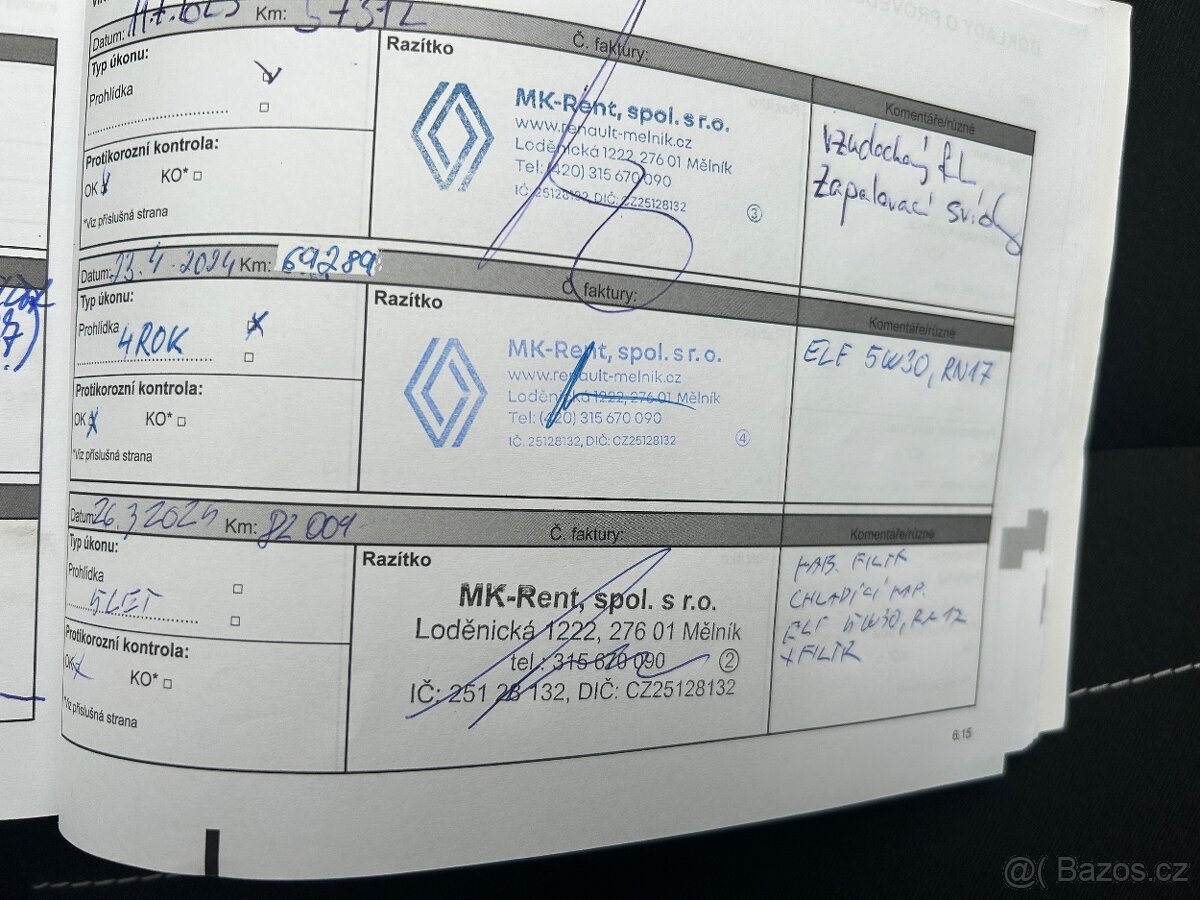 Datum: Km: 57312
Typ úkonu:
Prohlídka
Protikorozní kontrola:
OK KO*
*Viz příslušná strana
Razítko
Č. faktury:
MK-Rent, spol. s r.o.
www.renault-melnik.cz
Loděnická 1222, 276 01 Mělník
Tel: (420) 315 670 090
IČ: 25128132, DIČ: CZ25128132
3
Komentáře/různé
vzduchový
zapalovací svíčky
Datum: 23.4.2024 Km: 69289
Typ úkonu:
Prohlídka
4 ROK
Protikorozní kontrola:
OK KO*
*Viz příslušná strana
Č. faktury:
Razítko
MK-Rent, spol. s r.o.
www.renault-melnik.cz
Loděnická 1222, 276 01 Mělník
Tel: (420) 315 670 090
IČ: 25128132, DIČ: CZ25128132
4
Komentáře/různé
ELF 5W30, RN17
Datum: 26.3 2025 Km: 82 009
Typ úkonu:
Prohlídka
5 LET
Protikorozní kontrola:
OK KO*
*Viz příslušná strana
Č. faktury:
Razítko
MK-Rent, spol. s r.o.
Loděnická 1222, 276 01 Mělník
tel.: 315 670 090
2
IČ: 251 28 132, DIČ: CZ25128132
Komentáře/různé
KAB. FILTR
CHLADÍCÍ KAP.
ELF 5W30, RN17
+ FILTR
6.15
Bazos.cz